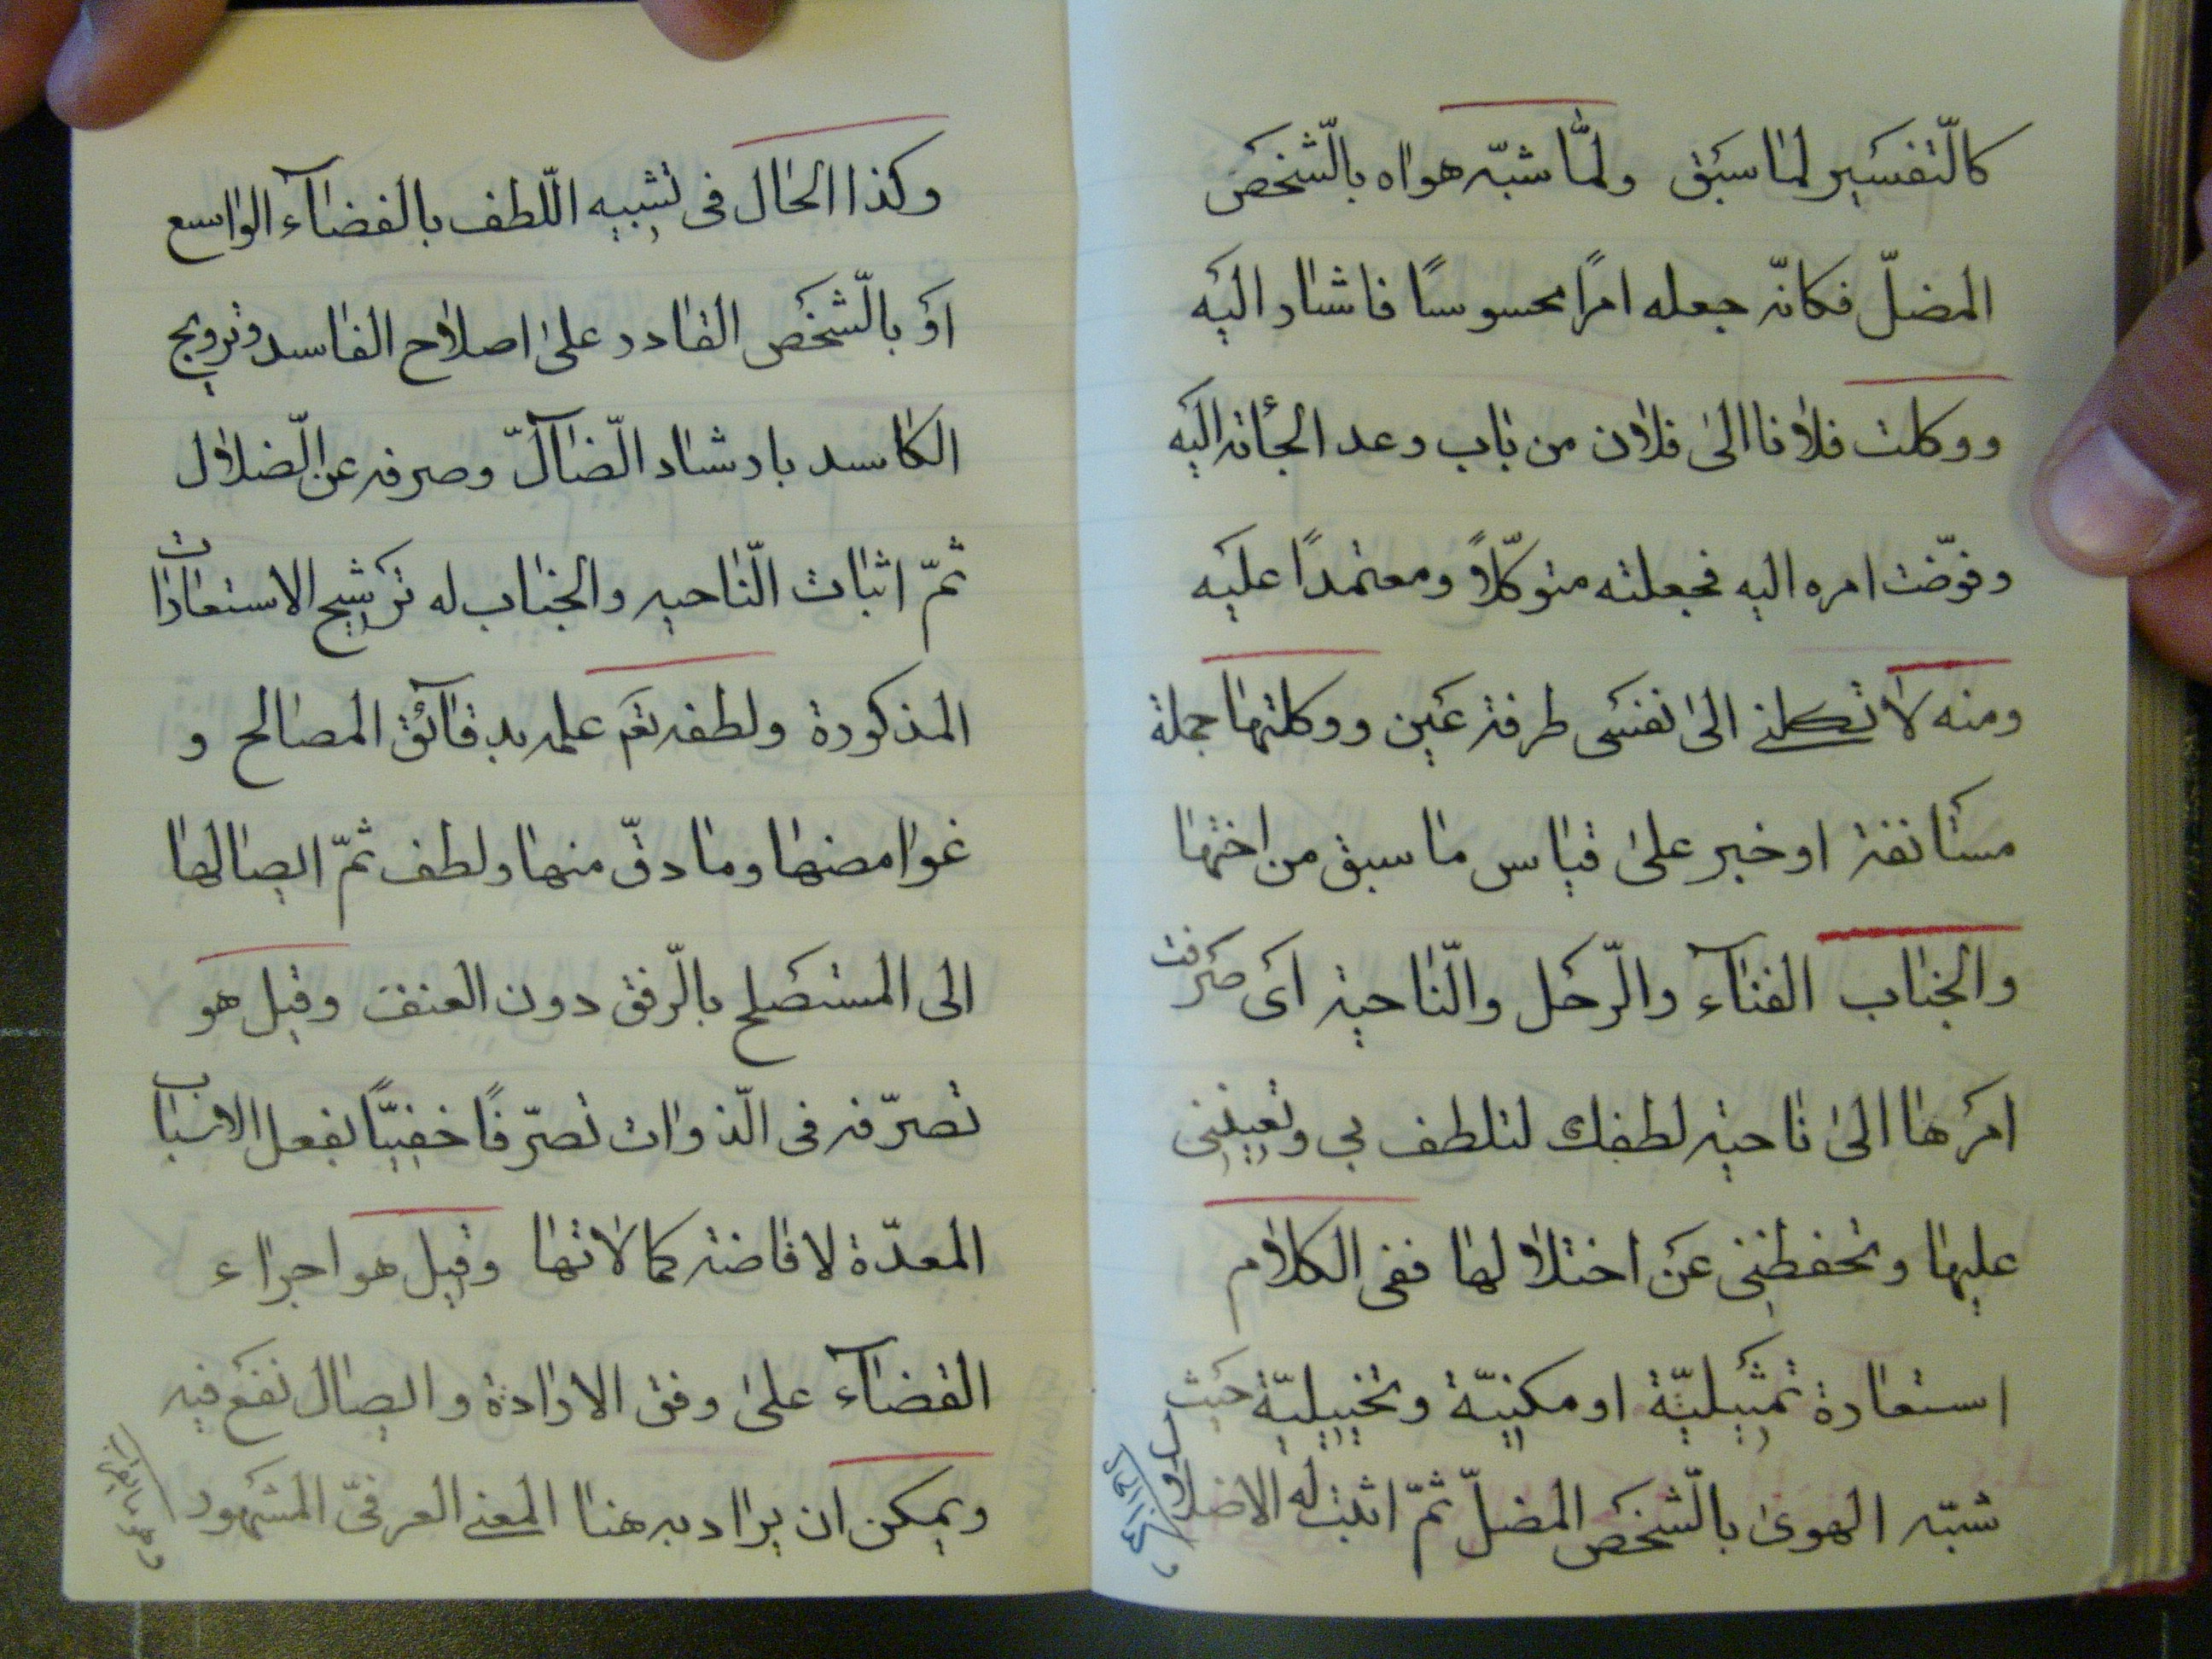 كالّتفسير لما سبق ولمّا شبّه هواه بالّشخص
المضلّ فكانّه جعله امرًا محسوسًا فاشار اليه
ووكلت فلانا الى فلان من باب وعد الجأته اليه
وفوّضت امره اليه فجعلته متوكّلاً ومعتمدًا عليه
ومنه لا تكلنى الى نفسى طرفة عين ووكلتها جملة
مستانفة او خبر على قياس ما سبق من اختها
والجناب الفنآء والرّحل والنّاحية اى صرفت
امرها الى ناحية لطفك لتلطف بى وتعيننى
عليها وتحفظنى عن اختلالها ففى الكلام
استعارة تمثيليّة او مكنيّة وتخييليّة حيث
شبّه الهوى بالّشخص المضلّ ثمّ اثبت له الاضلال
وكذا الحال فى تشبيه اللّطف بالفضآء الواسع
او بالّشخص القادر على اصلاح الفاسد وترويج
الكاسد بارشاد الّضآلّ وصرفه عن الّضلال
ثمّ اثبات النّاحيه والجناب له ترشيح الاستعارات
المذكورة ولطفه تع علمه بدقآئق المصالح و
غوامضها وما دقّ منها ولطف ثمّ ايصالها
الى المستصلح بالرّفق دون العنف وقيل هو
تصرّفه فى الّذوات تصرّفًا خفيّا بفعل الاسباب
المعدّة لافاضة كمالاتها وقيل هو اجراء
القضآء على وفق الارادة وايصال نفع فيه
ويمكن ان يراد به هنا المعنى العرفىّ المشهور